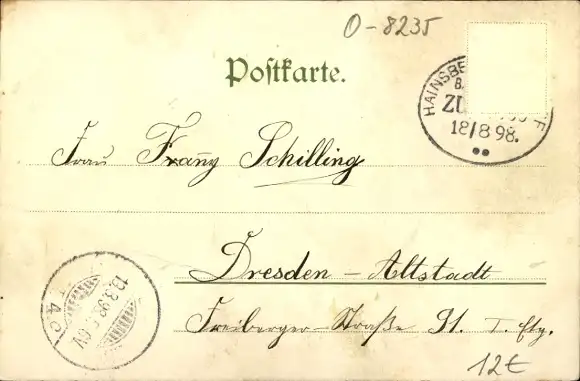 O-8235
Postkarte.
HAINSBE
ZU
18/8 98.
Frau Franz Schilling
Dresden - Altstadt
Freiberger-Straße 91. I. Etg.
12€